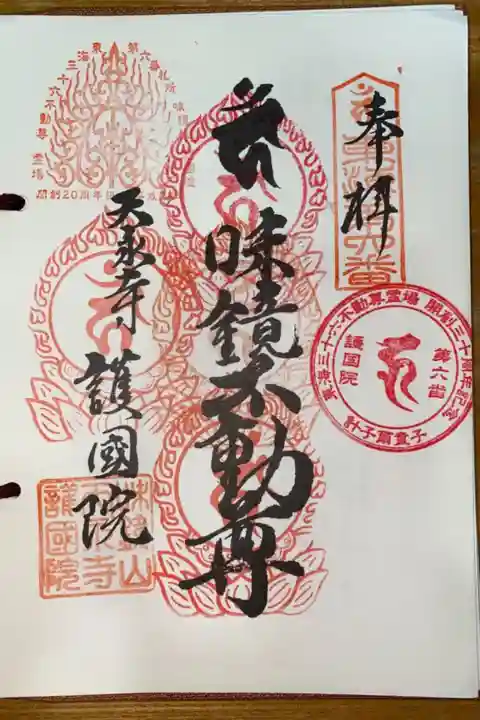 奉拝
味鏡不動尊
天永寺 護國院
東海三十六不動尊霊場 開創三十周年記念
第六番
護国院
計子爾童子
東海三十六不動尊霊場
第六番札所
開創20周年
味鏡山
天永寺
護國院